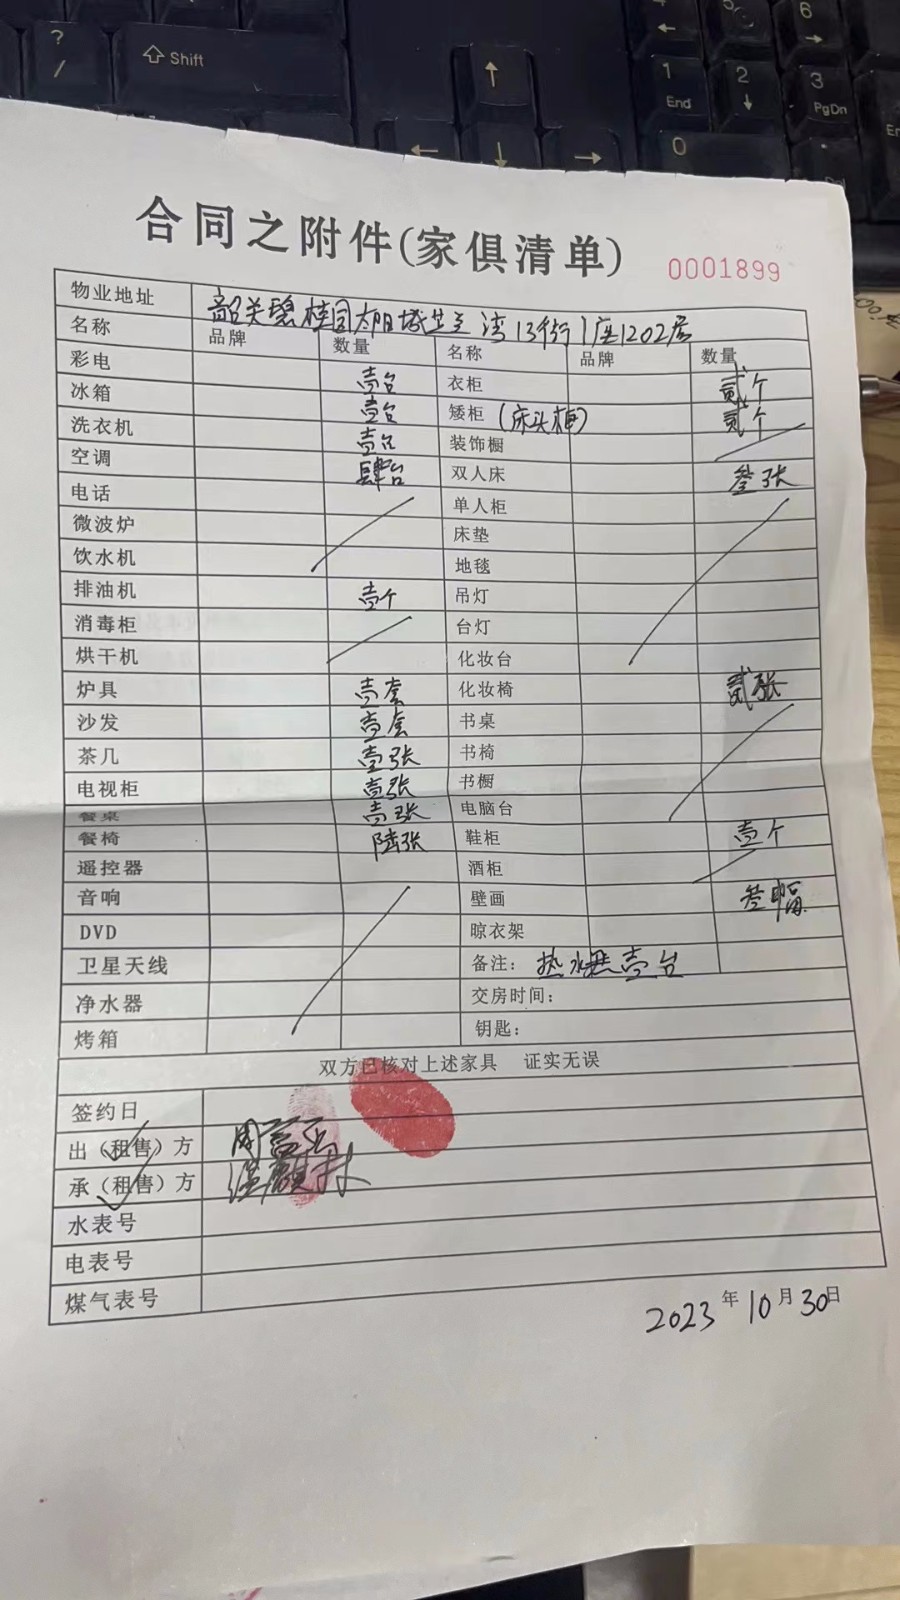 ? /
Shift
4 5 6
1 End 2 3 PgDn
0
合同之附件(家俱清单) 0001899
物业地址 韶关碧桂园太阳城芷兰湾13街1座1202房
名称 品牌 数量 名称 品牌 数量
彩电 壹台 衣柜 贰个
冰箱 壹台 矮柜(床头柜) 贰个
洗衣机 壹台 装饰橱
空调 肆台 双人床 叁张
电话 单人柜
微波炉 床垫
饮水机 地毯
排油机 壹个 吊灯
消毒柜 台灯
烘干机 化妆台
炉具 壹套 化妆椅 贰张
沙发 壹套 书桌
茶几 壹张 书椅
电视柜 壹张 书橱
餐桌 壹张 电脑台
餐椅 陆张 鞋柜 壹个
遥控器 酒柜
音响 壁画 叁幅
DVD 晾衣架
卫星天线 备注: 热水器壹台
净水器 交房时间:
烤箱 钥匙:
双方已核对上述家具 证实无误
签约日
出(租售)方
承(租售)方
水表号
电表号
煤气表号
2023年10月30日